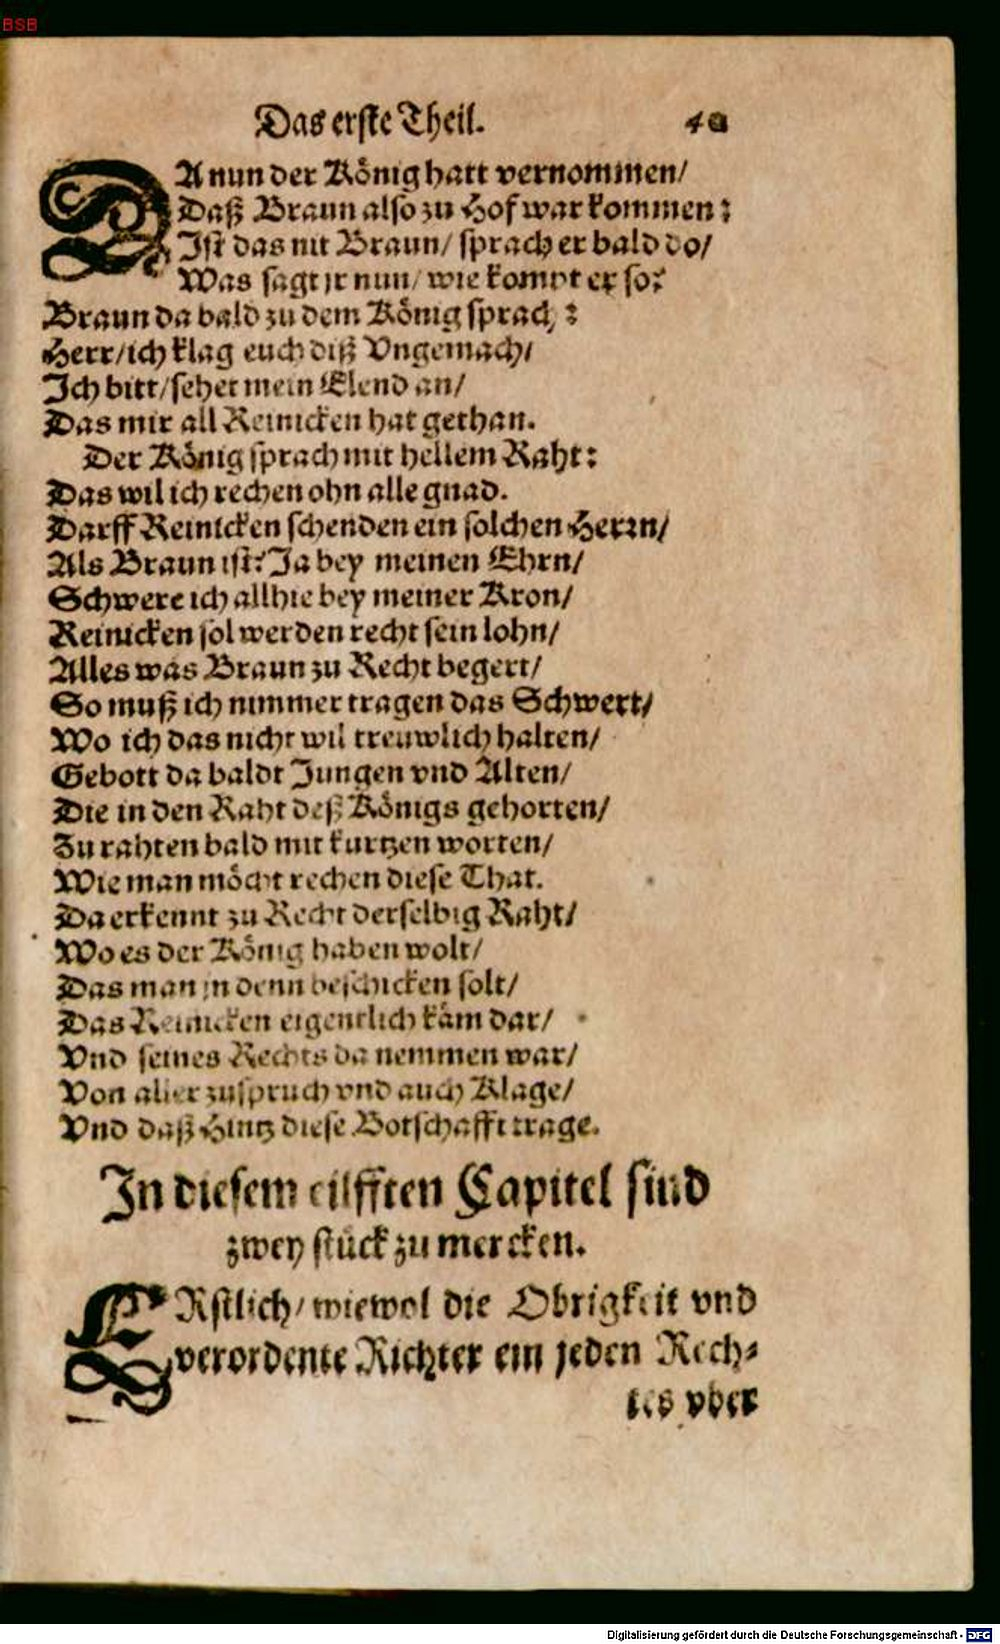 BSB
Das erste Theil. 40
DA nun der König hatt vernommen/
Daß Braun also zu Hof war kommen:
Ist das nit Braun/ sprach er bald do/
Was sagt jr nun/ wie kompt er so?
Braun da bald zu dem König sprach:
Herr/ich klag euch diß Vngemach/
Ich bitt/sehet mein Elend an/
Das mir all Reinicken hat gethan.
Der König sprach mit hellem Raht:
Das wil ich rechen ohn alle gnad.
Darff Reinicken schenden ein solchen Herrn/
Als Braun ist? Ja bey meinen Ehrn/
Schwere ich allhie bey meiner Kron/
Reinicken sol werden recht sein lohn/
Alles was Braun zu Recht begert/
So muß ich nimmer tragen das Schwert/
Wo ich das nicht wil treuwlich halten/
Gebott da baldt Jungen vnd Alten/
Die in den Raht deß Königs gehorten/
Zu rahten bald mit kurtzen worten/
Wie man möcht rechen diese That.
Da erkennt zu Recht derselbig Raht/
Wo es der König haben wolt/
Das man jn denn beschicken solt/
Das Reinicken eigentlich käm dar/
Vnd seines Rechts da nemmen war/
Von aller zuspruch vnd auch Klage/
Vnd daß Hintz diese Botschafft trage.
In diesem eilfften Capitel sind
zwey stück zu mercken.
ERstlich/ wiewol die Obrigkeit vnd
verordente Richter ein jeden Rech-
tes vber
Digitalisierung gefördert durch die Deutsche Forschungsgemeinschaft - DFG